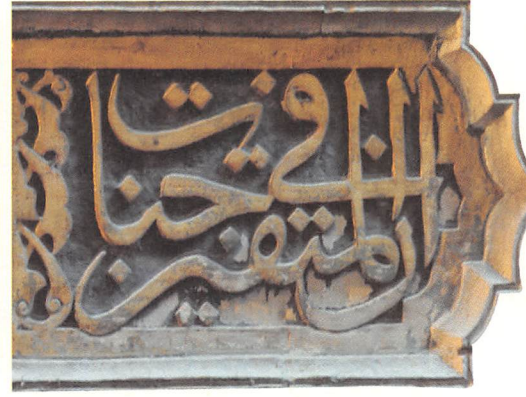 ان المتقين في جنات